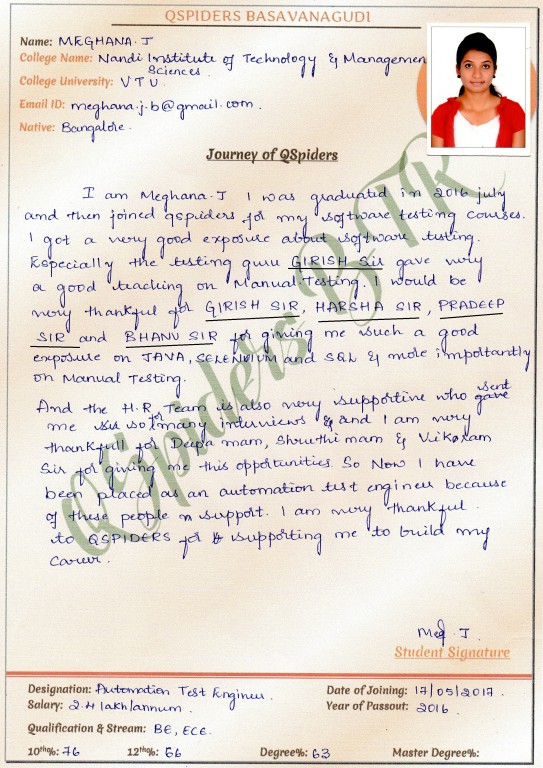 QSPIDERS BASAVANAGUDI
Name: MEGHANA.J
College Name: Nandi Institute of Technology & Management
Sciences.
College University: VTU
Email ID: meghana.j.b@gmail.com.
Native: Bangalore.
Journey of QSpiders
I am Meghana.J I was graduated in 2016 july
and then joined qspiders for my software testing courses.
I got a very good exposure about software testing.
Especially the testing guru GIRISH Sir gave very
a good teaching on Manual Testing. I would be
very thankful for GIRISH SIR, HARSHA SIR, PRADEEP
SIR and BHANU SIR for giving me such a good
exposure on JAVA, SELENIUM and SQL & more importantly
on Manual Testing.
And the H.R Team is also very supportive who sent gave
me so for many interviews & and I am very
thankfull for Deepa mam, Shruthi mam & Vikram
Sir for giving me this opportunities. So Now I have
been placed as an automation test engineer because
of these people support. I am very thankful
to QSPIDERS for supporting me to build my
career.
QSpiders BTR
Meg J.
Student Signature
Designation: Automation Test Engineer.
Date of Joining: 17/05/2017.
Salary: 2.4 lakh/annum.
Year of Passout: 2016.
Qualification & Stream: BE, ECE.
10th%: 76 12th%: 66 Degree%: 63 Master Degree%: